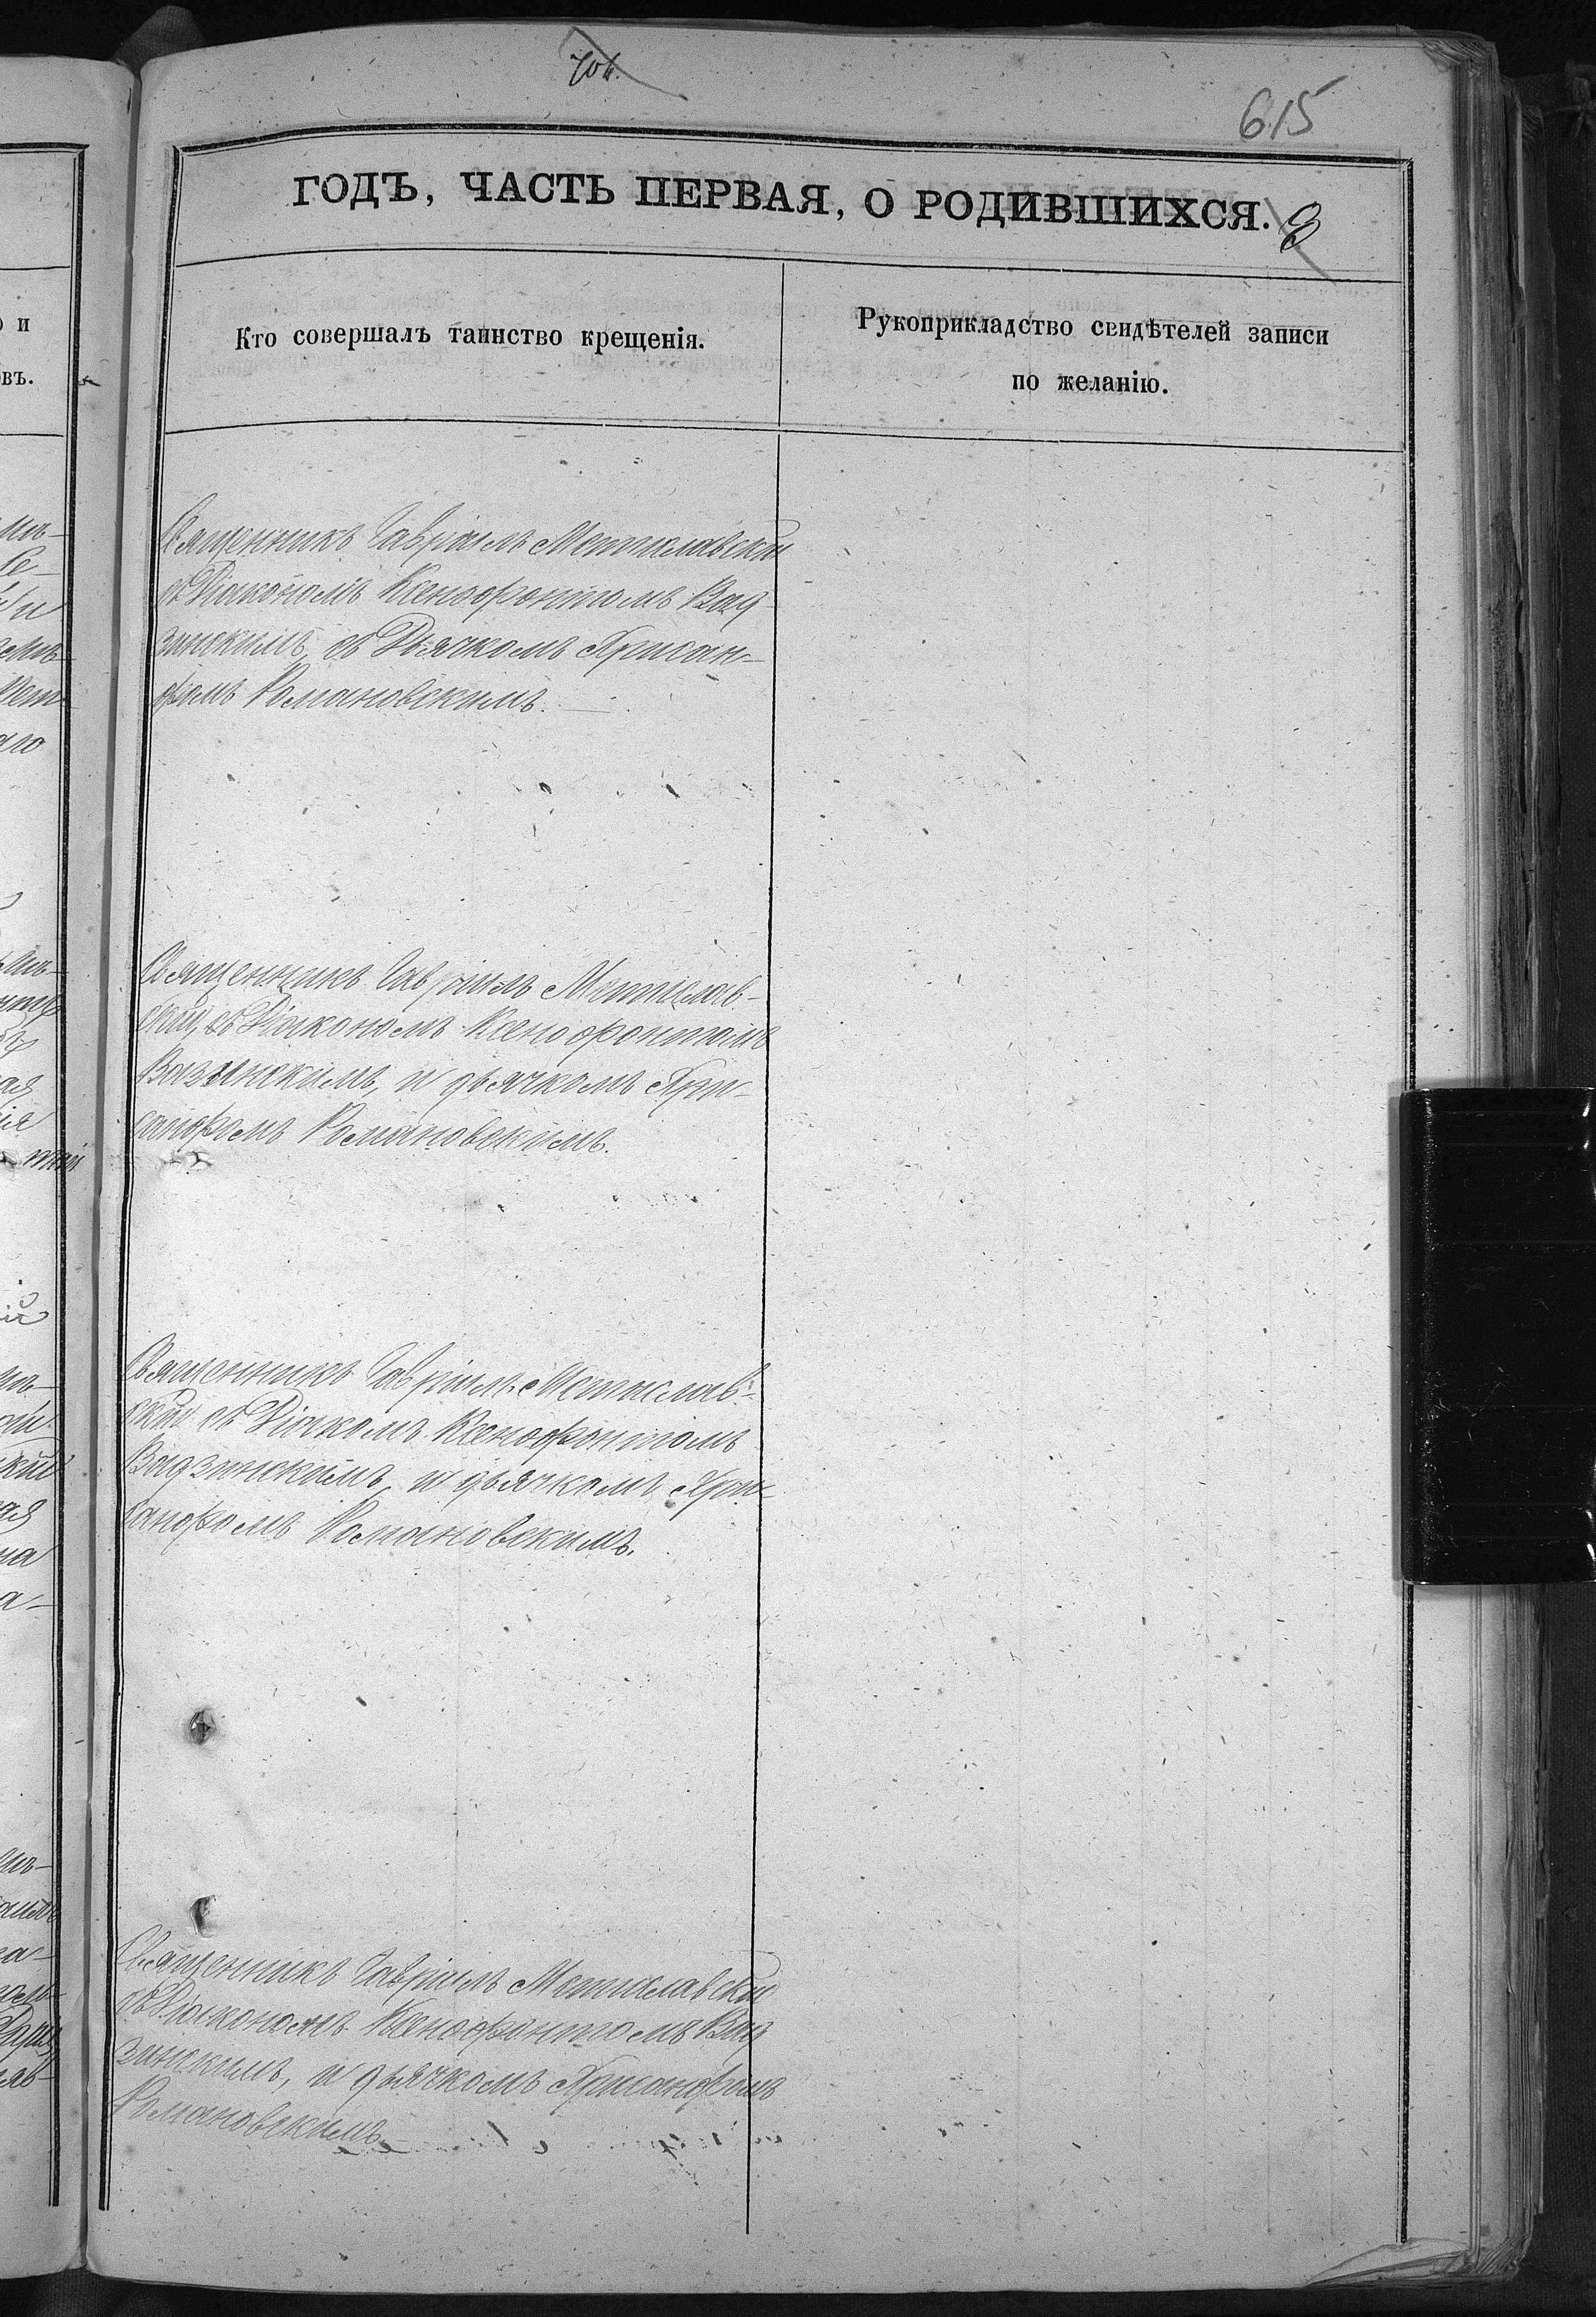 615
ГОДЪ, ЧАСТЬ ПЕРВАЯ, О РОДИВШИХСЯ.
Кто совершалъ таинство крещенія.
Рукоприкладство свидѣтелей записи
по желанію.
Священникъ Гавріилъ Мстиславскій
съ Діакономъ Ксенофонтомъ Вад
зинскимъ, съ Дьячкомъ Хрисан-
фомъ Романовскимъ.
Священникъ Гавріилъ Мстислав-
скій, съ Діакономъ Ксенофонтомъ
Вадзинскимъ, и дьячкомъ Хри-
санфомъ Романовскимъ.
Священникъ Гавріилъ Мстислав-
скій съ Діакомъ Ксенофонтомъ
Вадзинскимъ, и дьячкомъ Хри-
санфомъ Романовскимъ.
Священникъ Гавріилъ Мстиславскій
съ Діакономъ Ксенофонтомъ Вад
зинскимъ, и дьячкомъ Хрисанфомъ
Романовскимъ